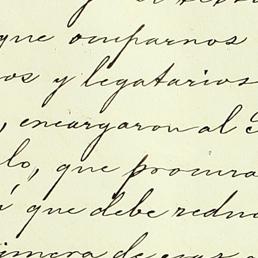 que ocuparnos
os y legatarios
, encargaron al
lo, que procura
que debe redu
imera de esas